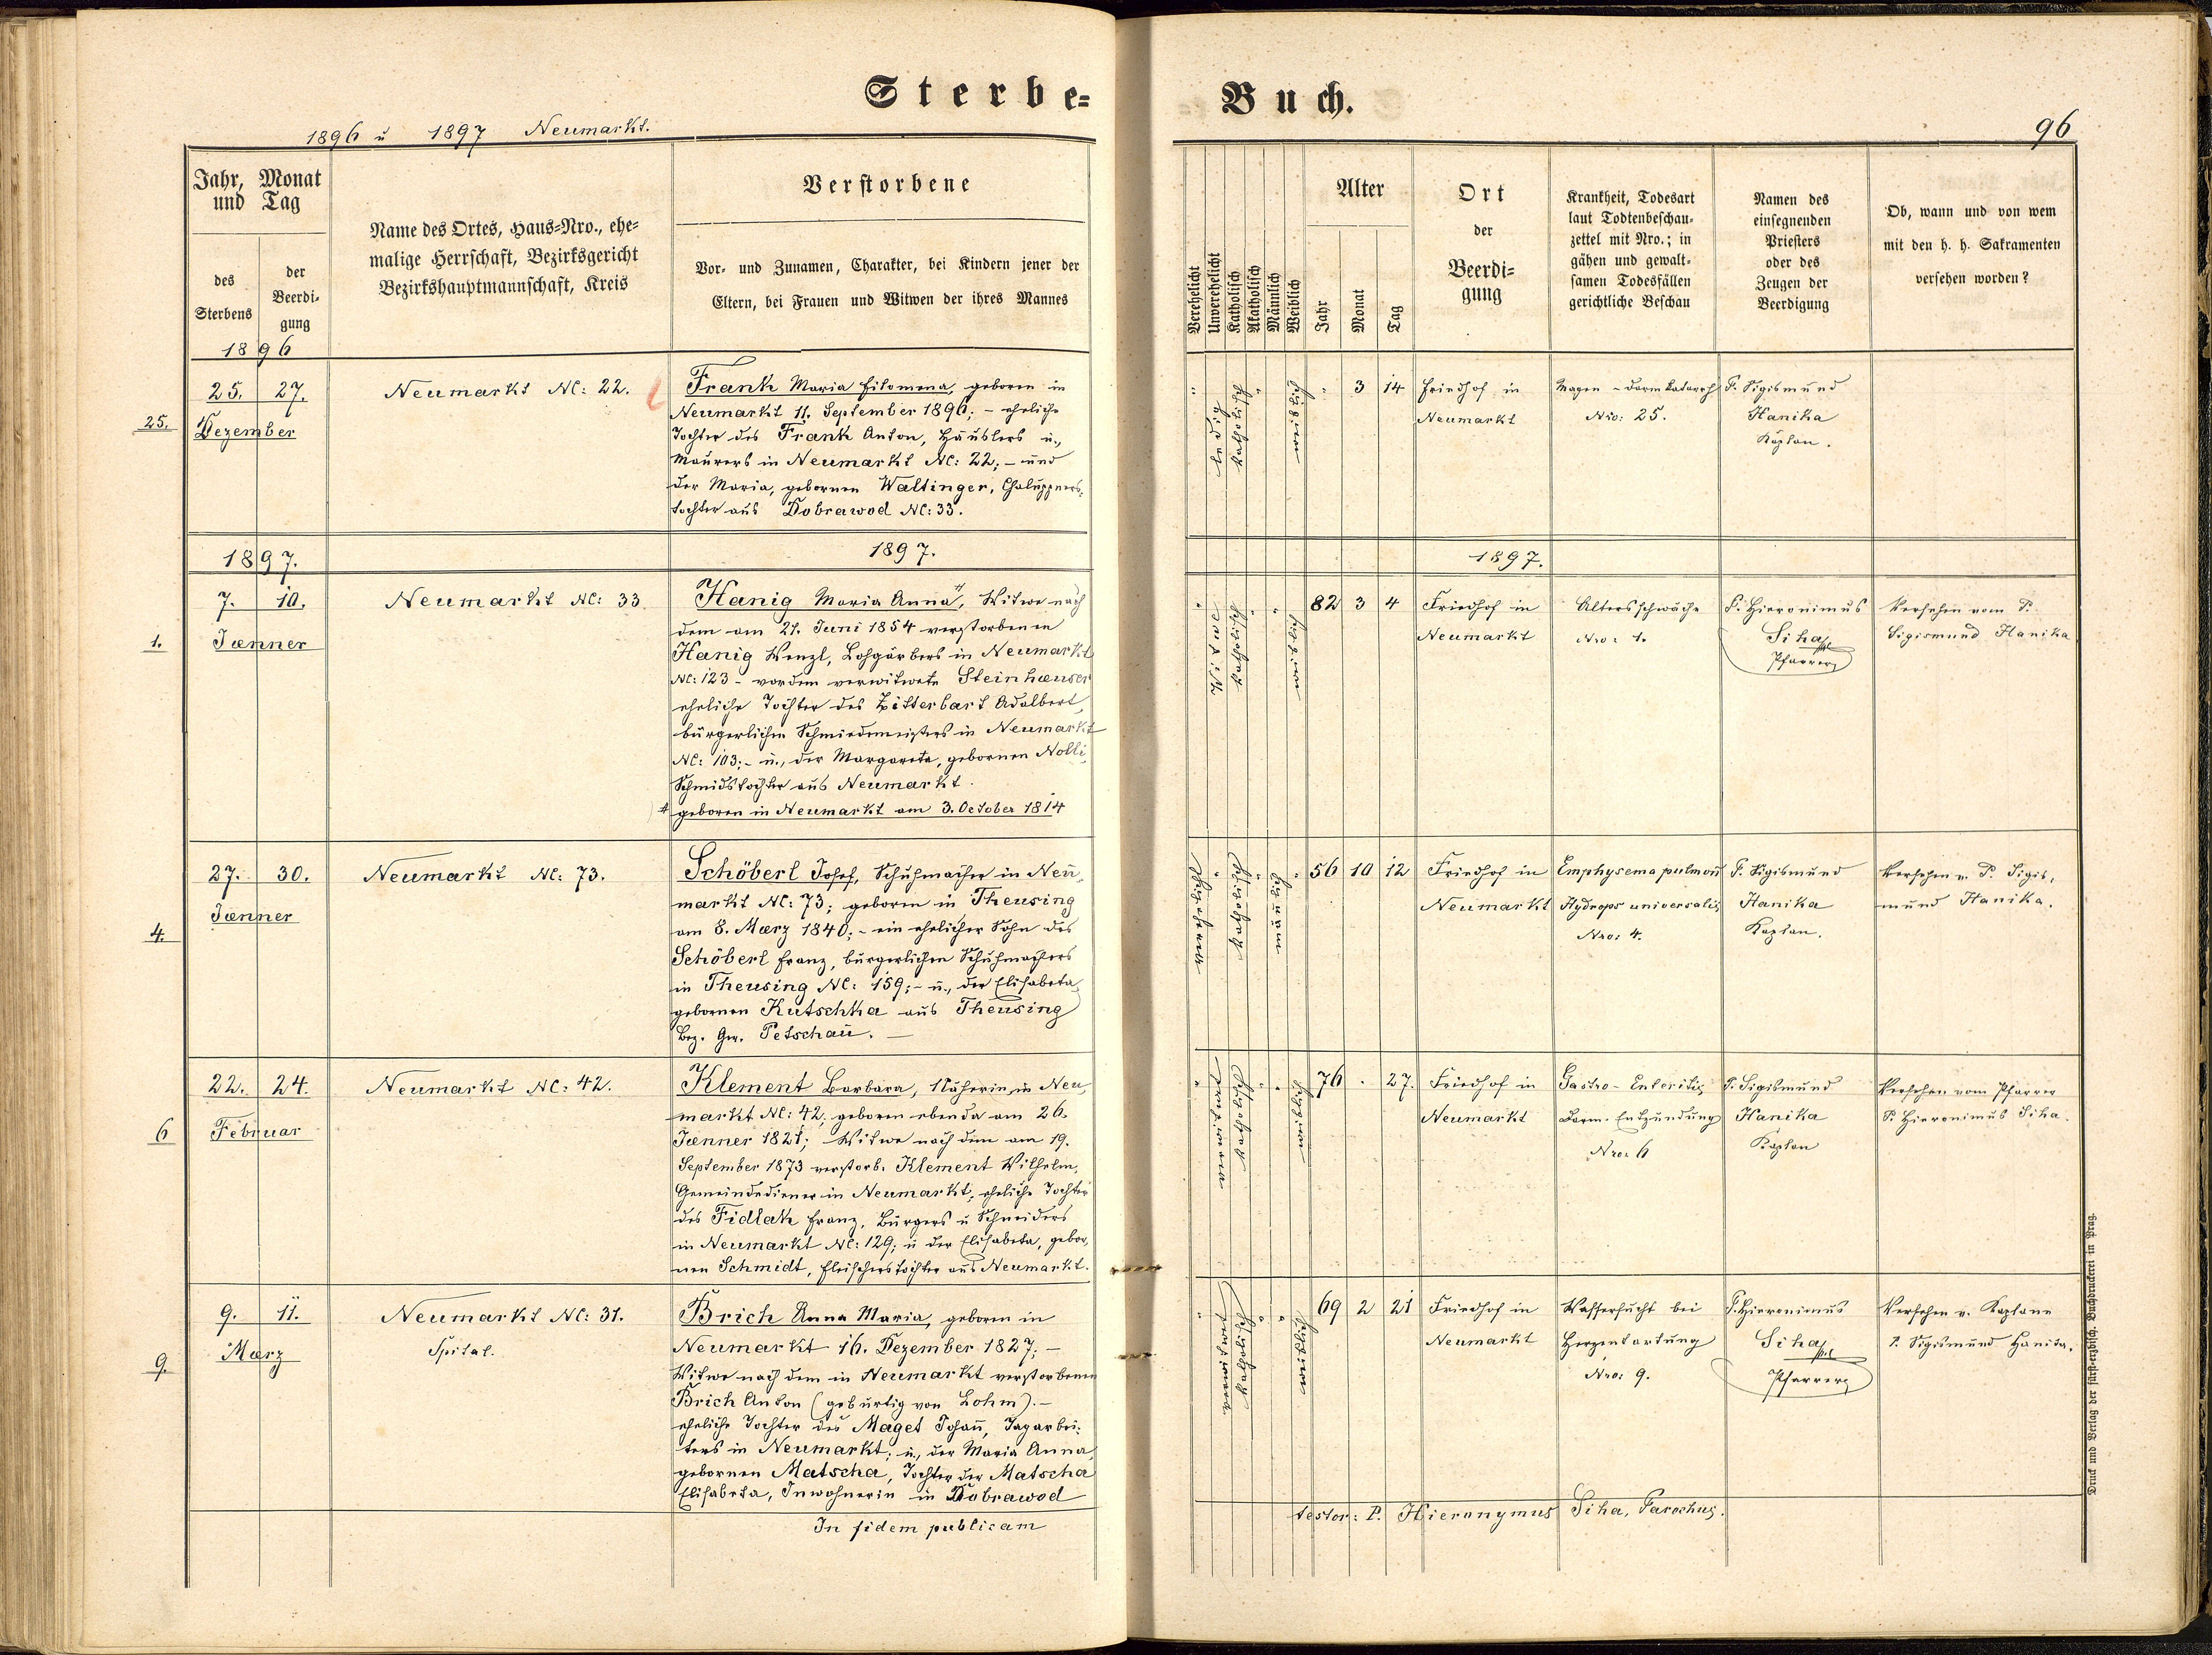 Sterbe-
1896 u 1897 Neumarkt.
Jahr, Monat
und Tag
des
Sterbens
der
Beerdi-
gung
Name des Ortes, Haus-Nro., ehe-
malige Herrschaft, Bezirksgericht
Bezirkshauptmannschaft, Kreis
Verstorbene
Vor- und Zunamen, Charakter, bei Kindern jener der
Eltern, bei Frauen und Witwen der ihres Mannes
1896
25.
25. 27.
Dezember
Neumarkt NC: 22.
Frank Maria Filomena, geboren in
Neumarkt 11. September 1896; - eheliche
Tochter des Frank Anton, Häuslers u.,
Maurers in Neumarkt NC: 22; - und
der Maria, gebornen Waltinger, Chaluppners-
tochter aus Dobrawod NC: 33.
1897.
1897.
1.
7. 10.
Jænner
Neumarkt NC: 33
Hanig Maria Anna #, Witwe nach
dem am 21. Juni 1854 verstorbenen
Hanig Wenzl, Lohgärbers in Neumarkt
NC: 123 - vordem verwitwete Steinhæuser
eheliche Tochter des Zitterbart Adalbert,
bürgerlichen Schmiedmeisters in Neumarkt
NC: 103; - u., der Margareta, gebornen Nolli
Schmidstochter aus Neumarkt.
# geboren in Neumarkt am 3. October 1814
4.
27. 30.
Jænner
Neumarkt NC: 73.
Schöberl Josef, Schuhmacher in Neu-
markt NC: 73; geboren in Theusing
am 8. Mærz 1840; - ein ehelicher Sohn des
Schöberl Franz, bürgerlichen Schuhmachers
in Theusing NC: 159; - u., der Elisabeta,
gebornen Kutschka aus Theusing
Bez. Ger. Petschau. -
6
22. 24.
Februar
Neumarkt NC: 42.
Klement Barbara, Näherin in Neu-
markt NC: 42, geboren ebenda am 26.
Jænner 1821; Witwe nach dem am 19.
September 1873 verstorb. Klement Wilhelm,
Gemeindediener in Neumarkt, eheliche Tochter
des Fidlak Franz, Bürgers u Schneiders
in Neumarkt NC: 129; u der Elisabeta, gebor-
nen Schmidt, Fleischerstochter aus Neumarkt.
9.
9. 11.
Mærz
Neumarkt NC: 31.
Spital.
Brich Anna Maria, geboren in
Neumarkt 16. Dezember 1827; -
Witwe nach dem in Neumarkt verstorbenen
Brich Anton (gebürtig von Lohm). -
eheliche Tochter des Maget Johañ, Tagarbei-
ters in Neumarkt; u., der Maria Anna,
gebornen Matscha, Tochter der Matscha
Elisabeta, Inwohnerin in Dobrawod
In fidem publicam
Buch.
96
Verehelicht
Unverehelicht
Katholisch
Akatholisch
Männlich
Weiblich
Alter
Jahr
Monat
Tag
Ort
der
Beerdi-
gung
Krankheit, Todesart
laut Todtenbeschau-
zettel mit Nro.; in
gähen und gewalt-
samen Todesfällen
gerichtliche Beschau
Namen des
einsegnenden
Priesters
oder des
Zeugen der
Beerdigung
Ob, wann und von wem
mit den h. h. Sakramenten
versehen worden?
" ledig katholisch " weiblich
" 3 14
Friedhof in
Neumarkt
Magen-Darmkatarrh
Nro: 25.
P. Sigismund
Hanika
Kaplan.
1897.
" Witwe katholisch " weiblich
82 3 4
Friedhof in
Neumarkt
Altersschwäche
Nro: 1.
P. Hieronimus
Siha
Pfarrer
Versehen vom P.
Sigismund Hanika
verehelicht " katholisch " männlich "
56 10 12
Friedhof in
Neumarkt
Emphysema pulmoñ
Hydrops universalis
Nro: 4.
P. Sigismund
Hanika
Kaplan.
Versehen v. P. Sigis-
mund Hanika.
" verwitwet katholisch " weiblich
76 . 27.
Friedhof in
Neumarkt
Gastro-Enteritis
Darm-Entzündung
Nro: 6
P. Sigismund
Hanika
Kaplan
Versehen vom Pfarrer
P. Hieronimus Siha.
" verwitwet. katholisch " weiblich
69 2 21
Friedhof in
Neumarkt
Wassersucht bei
Herzentartung
Nro: 9.
P. Hieronimus
Siha
Pfarrer
Versehen v. Kaplane
P. Sigismund Hanika.
testor: P. Hieronymus Siha, Parochus.
Druck und Verlag der fürst-erzbisch. Buchdruckerei in Prag.